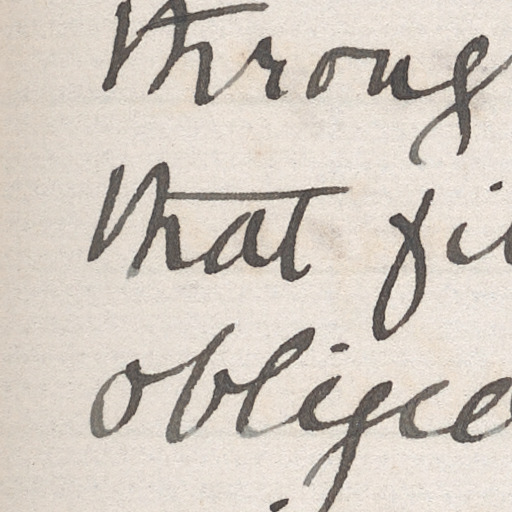 throug
that fi
oblige